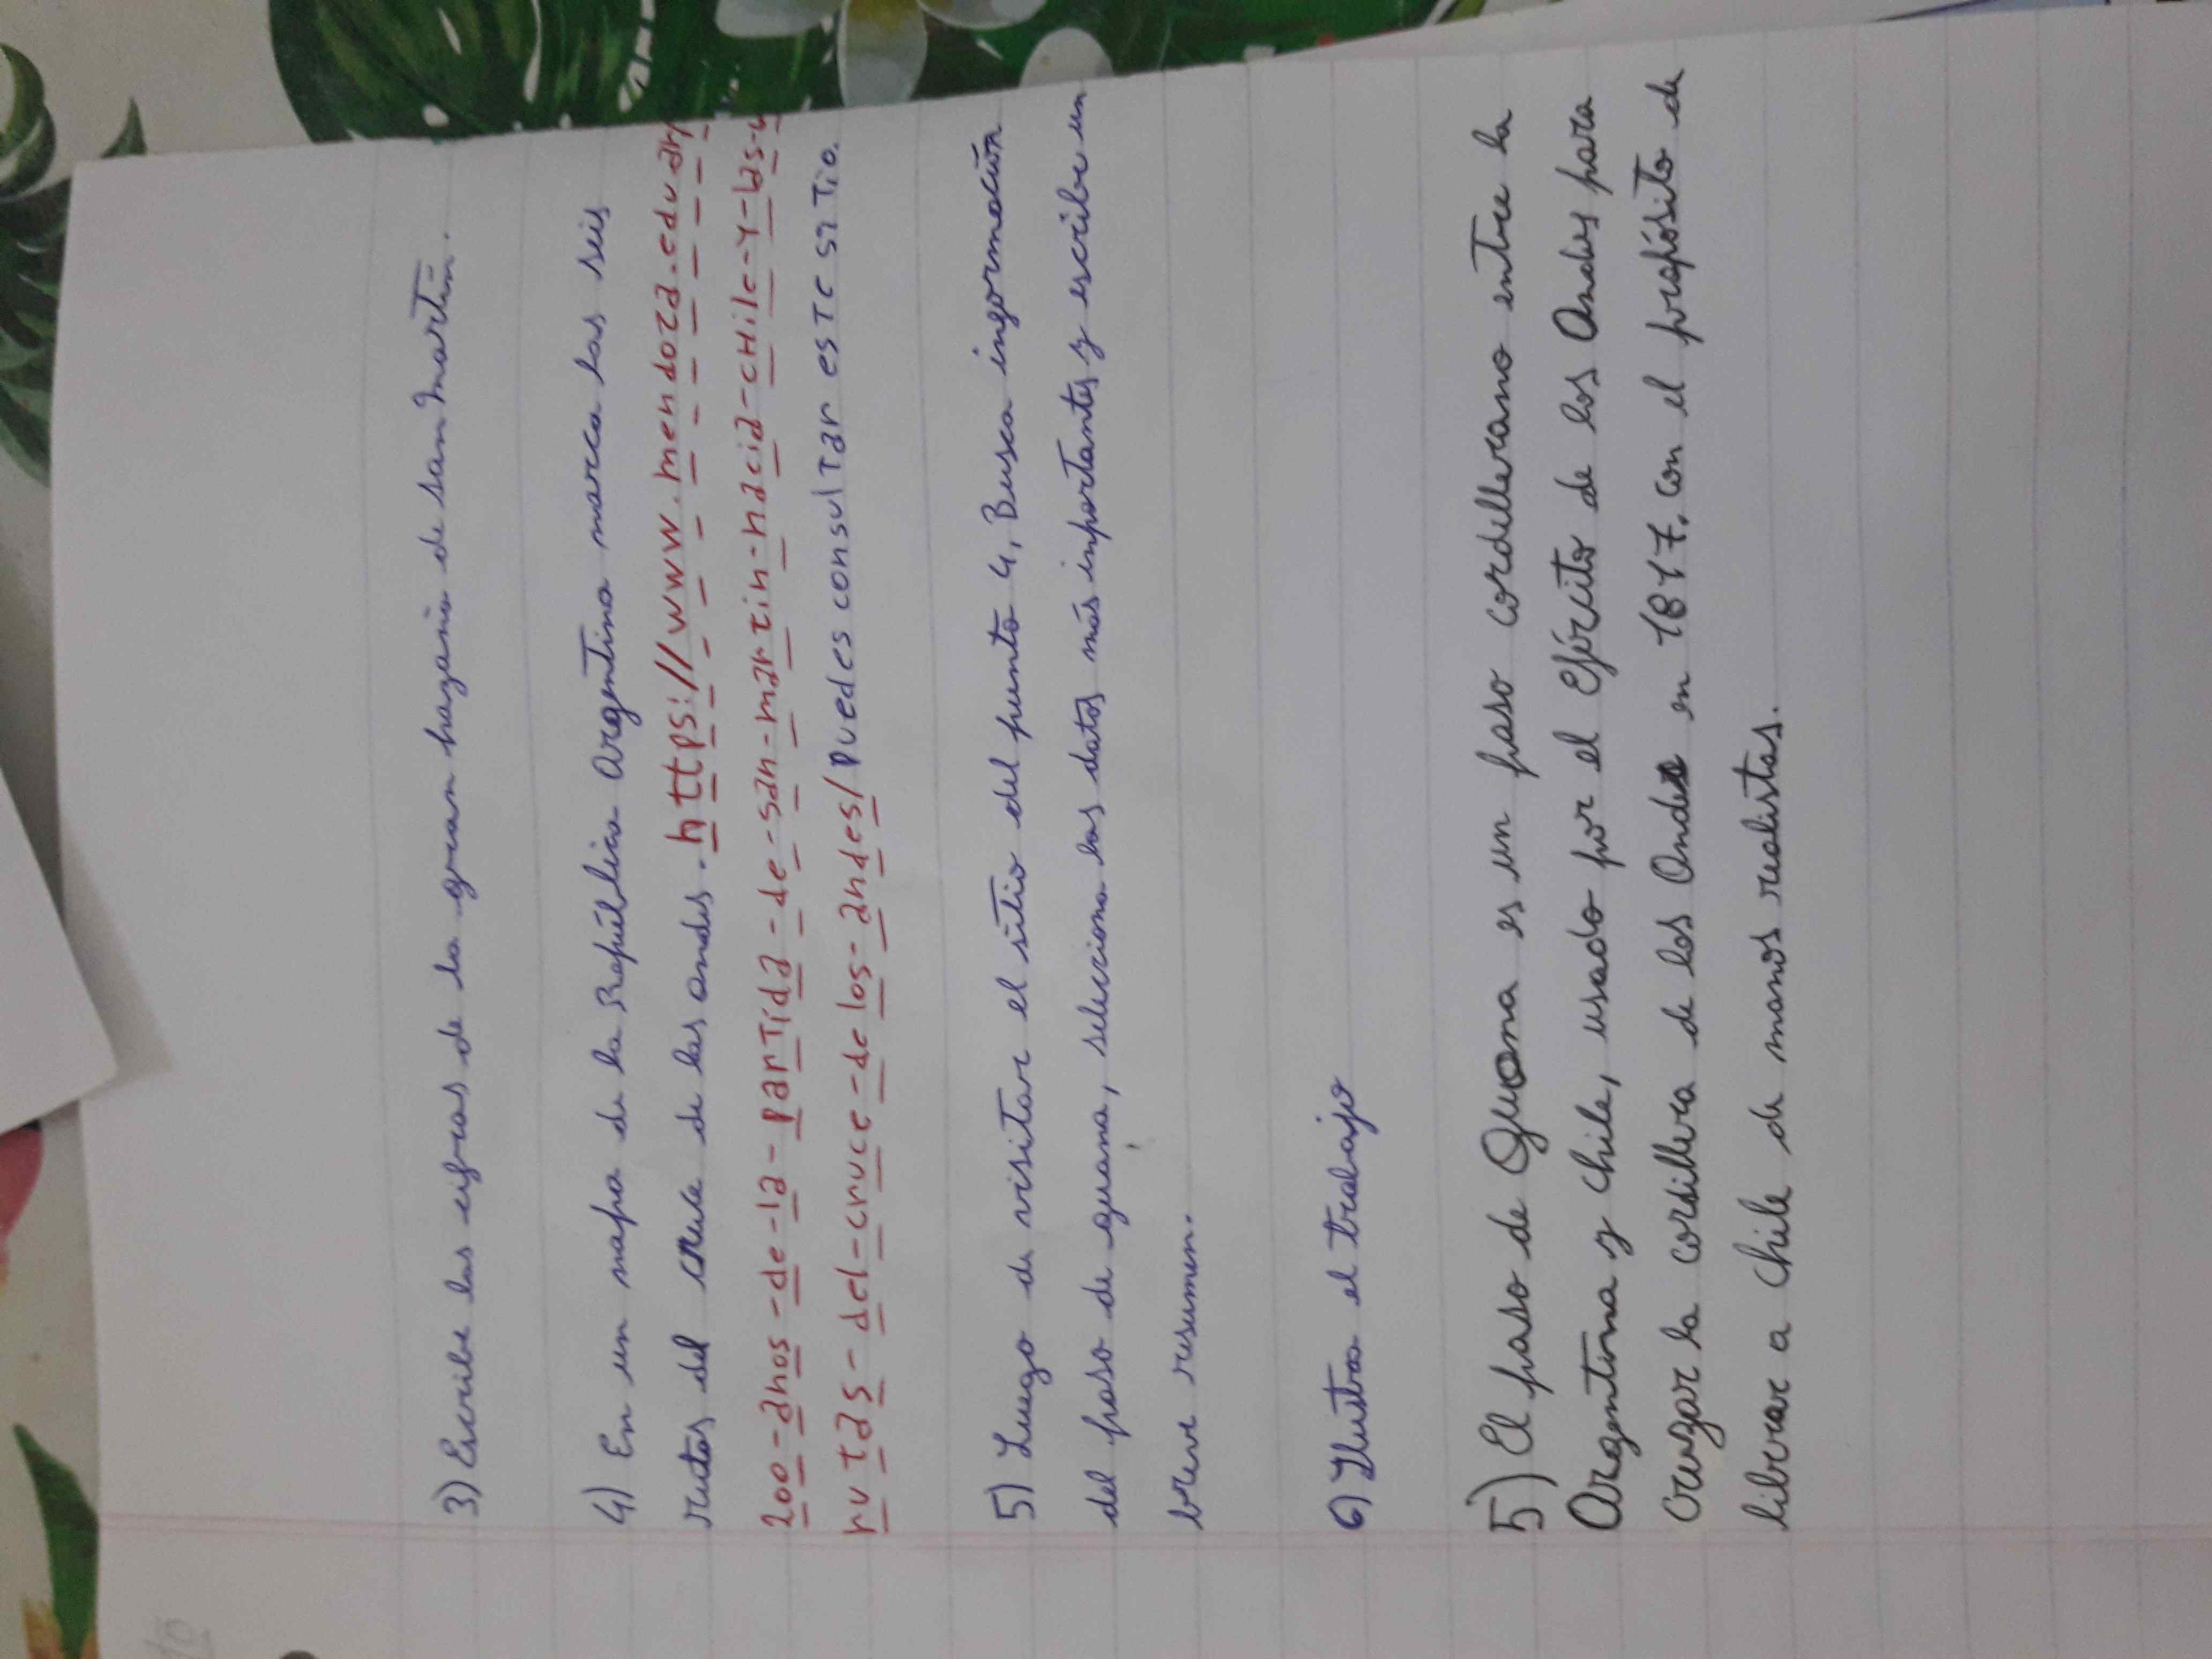 3) Escribe las cifras de la gran hazaña de san Martín.
4) En un mapa de la República Argentina marca las seis
rutas del cruce de los andes. https://www.mendoza.edu.ar/
200-anos-de-la-partida-de-san-martin-hacia-cHile-y-las-
rutas-del-cruce-de los-andes/ puedes consultar este sitio.
5) Luego de visitar el sitio del punto 4, Busca información
del paso de guana, selecciona los datos más importantes y escribe un
breve resumen.
6) Ilustra el trabajo
5) El paso de Guana es un paso cordillerano entre la
Argentina y Chile, usado por el Ejército de los Andes para
cruzar la cordillera de los Andes en 1817, con el propósito de
liberar a Chile de manos realistas.